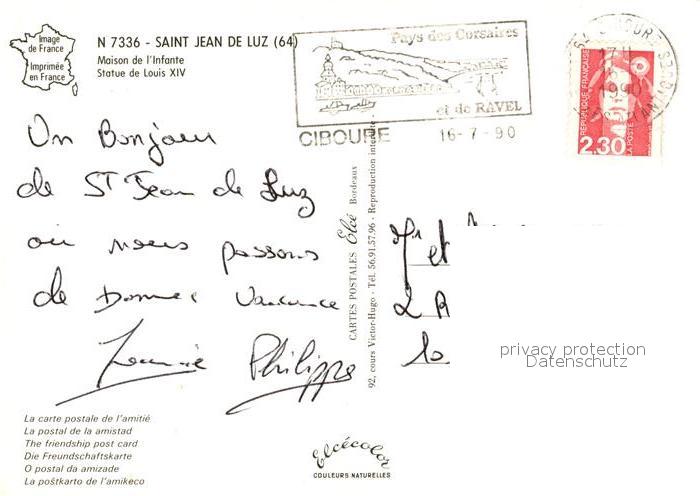 Image
de France
Imprimée
en France
N 7336 - SAINT JEAN DE LUZ (64)
Maison de l'Infante
Statue de Louis XIV
Pays des Corsaires
et de RAVEL
CIBOURE 16-7-90
1990
REPUBLIQUE FRANÇAISE
LA POSTE
2,30
Un Bonjour
de ST Jean de Luz
où nous passons
de Bonnes Vacance
Philippe
CARTES POSTALES Elcé Bordeaux
92, cours Victor-Hugo - Tél. 56.91.57.96 - Reproduction interdite
et
privacy protection
Datenschutz
La carte postale de l'amitié
La postal de la amistad
The friendship post card
Die Freundschaftskarte
O postal da amizade
La poŝtkarto de l'amikeco
Elcécolor
COULEURS NATURELLES